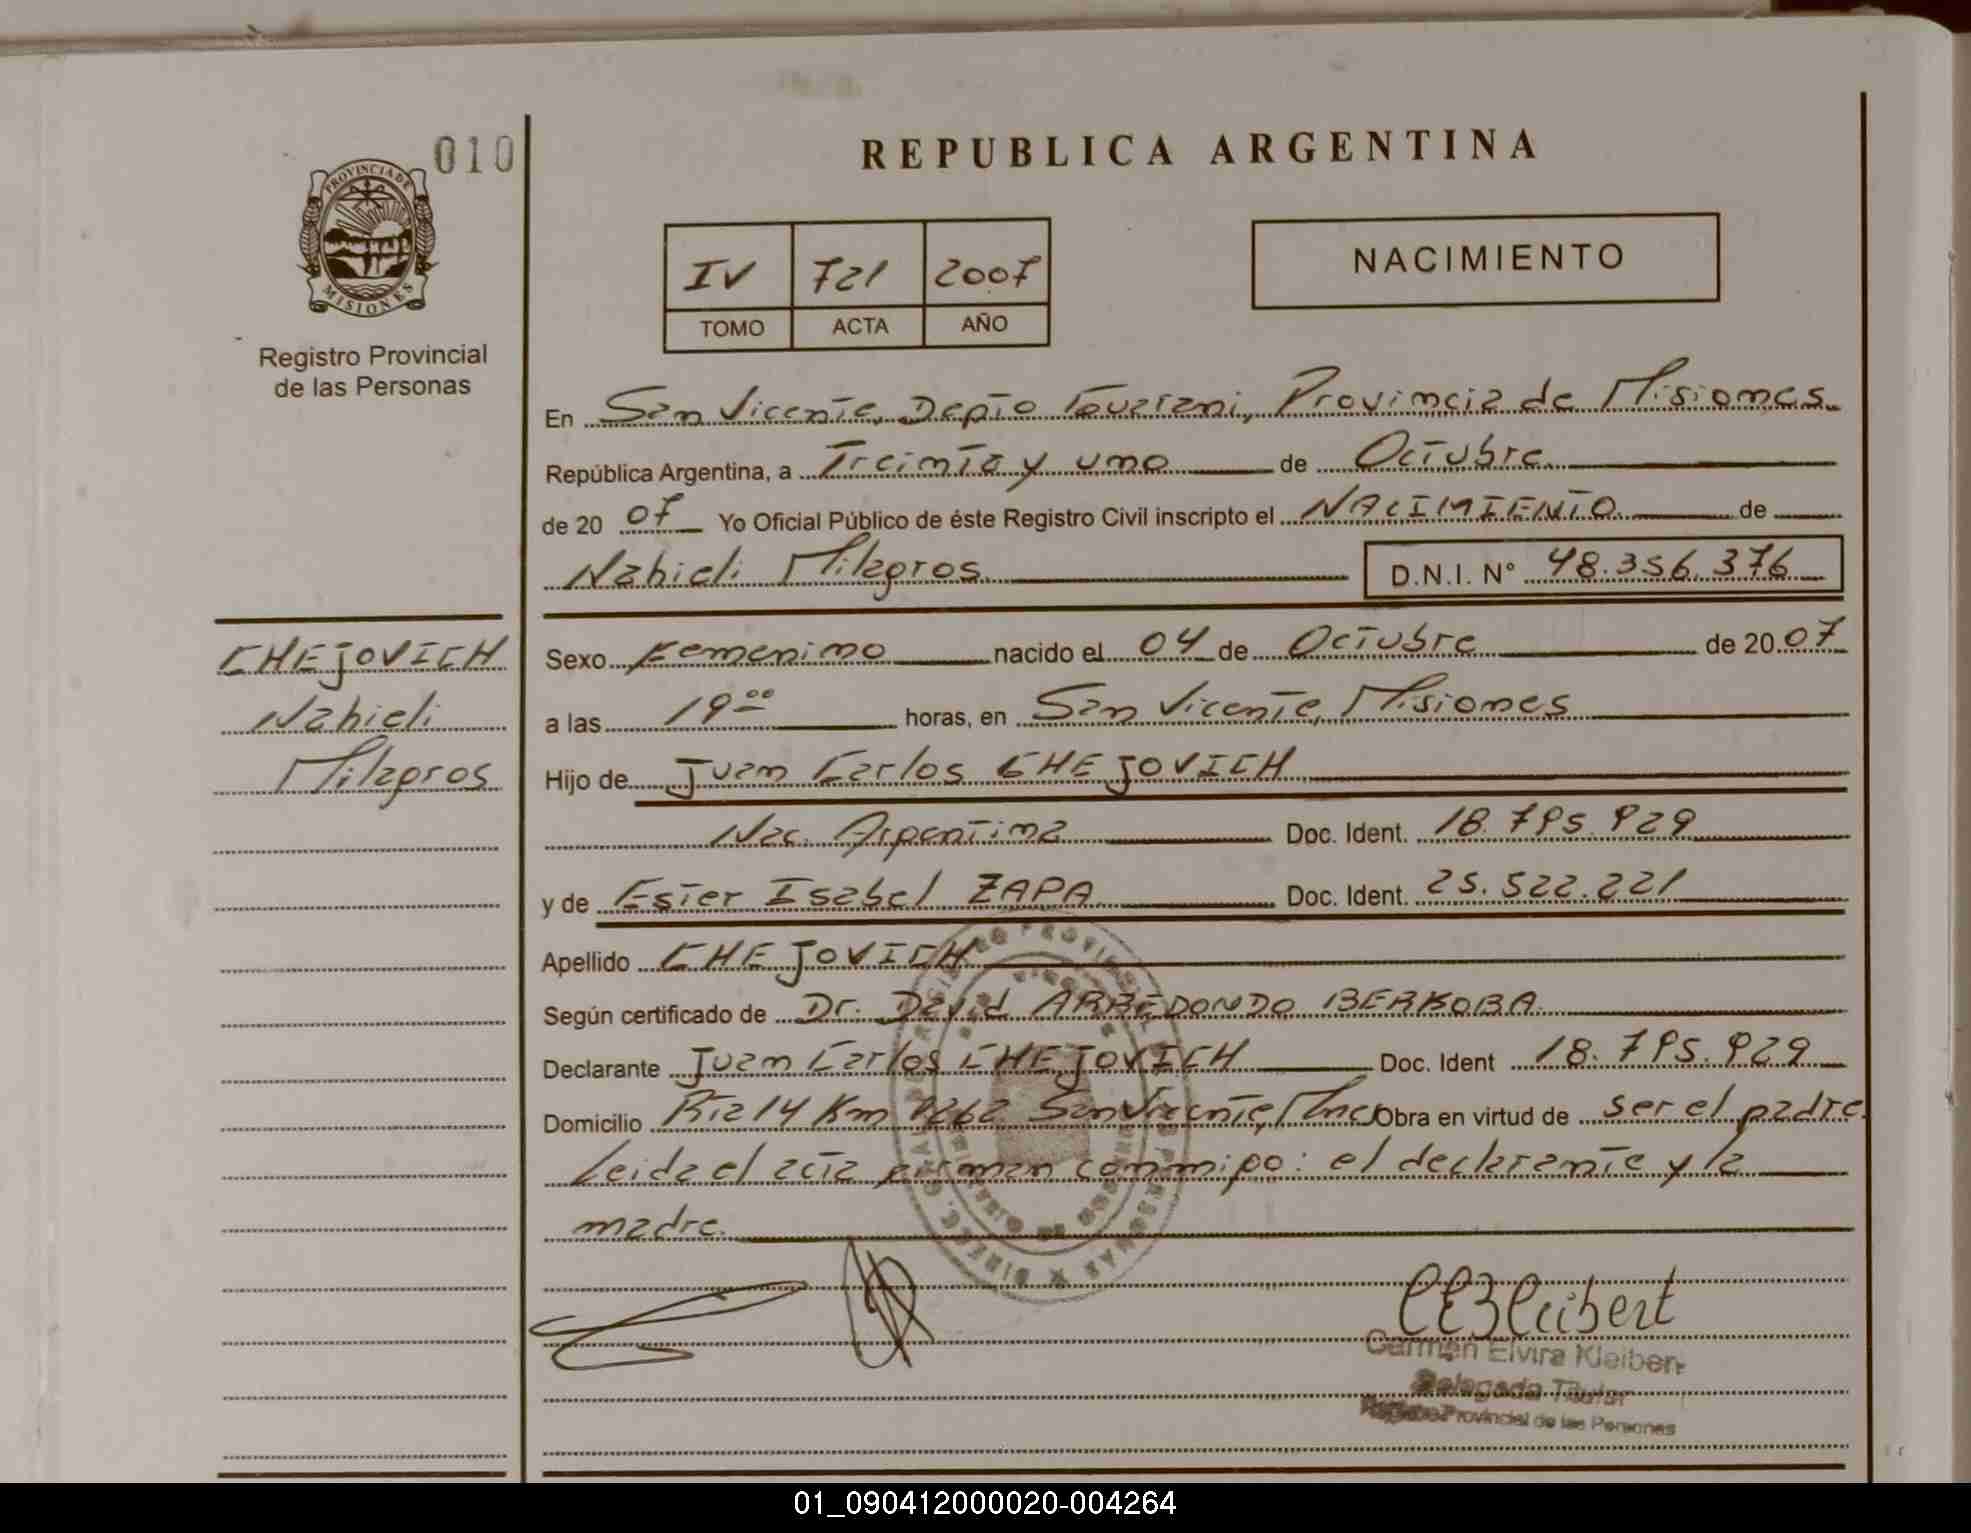 010
PROVINCIA DE
MISIONES
Registro Provincial
de las Personas
REPUBLICA ARGENTINA
IV 721 2007
TOMO ACTA AÑO
NACIMIENTO
En San Vicente, Depto Guarani, Provincia de Misiones
República Argentina, a Treinta y uno de Octubre
de 20 07 Yo Oficial Público de éste Registro Civil inscripto el NACIMIENTO de
Nahieli Milagros D.N.I. N° 48.356.376
CHEJOVICH
Nahieli
Milagros
Sexo Femenino nacido el 04 de Octubre de 20 07
a las 19 00 horas, en San Vicente, Misiones
Hijo de Juan Carlos CHEJOVICH
Nac. Argentina Doc. Ident. 18.795.929
y de Ester Isabel ZAPA Doc. Ident. 25.522.221
Apellido CHEJOVICH
Según certificado de Dr. David ARREDONDO BERKOBA
Declarante Juan Carlos CHEJOVICH Doc. Ident 18.795.929
Domicilio Rta 14 Km 1262 San Vicente, Mnes Obra en virtud de ser el padre
Leida el acta firman conmigo: el declarante y la
madre.
Carmen Elvira Kleibert
Delegada Titular
Registro Provincial de las Personas
01_090412000020-004264